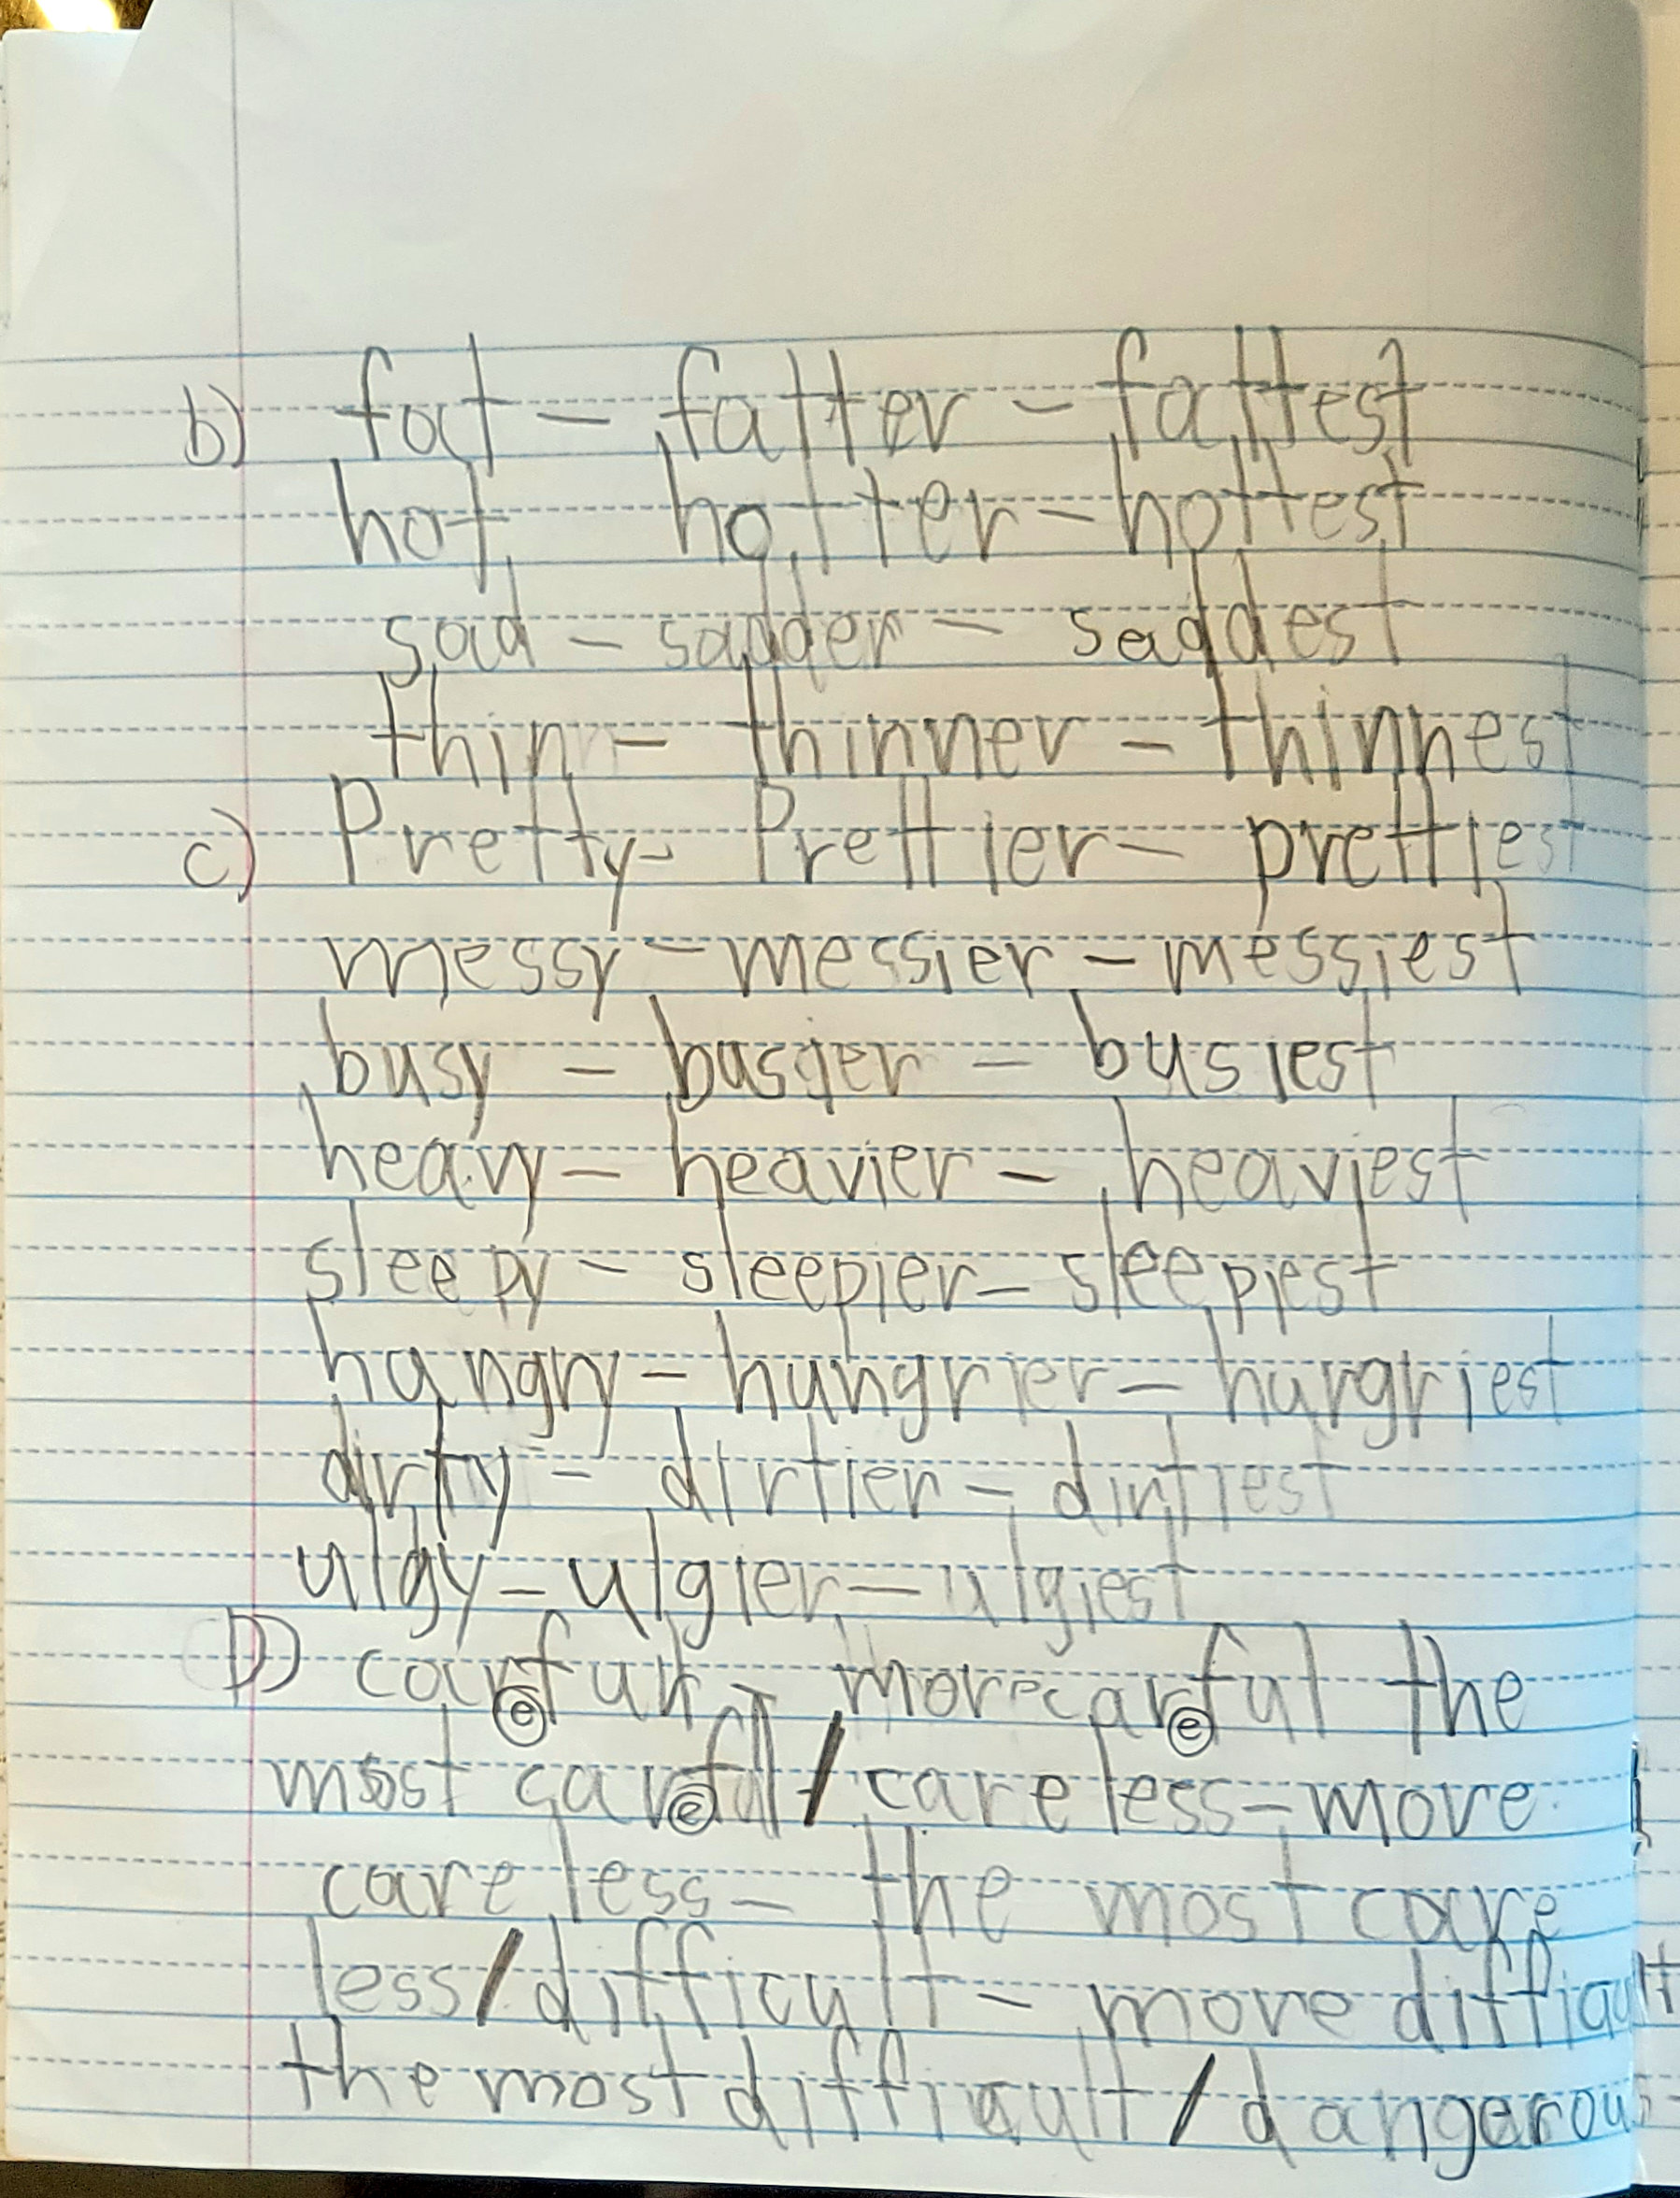 b) fat - fatter - fattest
hot hotter - hottest
sad - sadder - saddest
thin - thinner - thinnest
c) Pretty - Prettier - prettiest
messy - messier - messiest
busy - busier - busiest
heavy - heavier - heaviest
sleepy - sleepier - sleepiest
hungry - hungrier - hurgriest
dirty - dirtier - dirtiest
ulgy - ulgier - ulgiest
D) carefull - more careful the
most careful / careless - more
care less - the most care
less / difficult - more difficult
the most difficult / dangerous